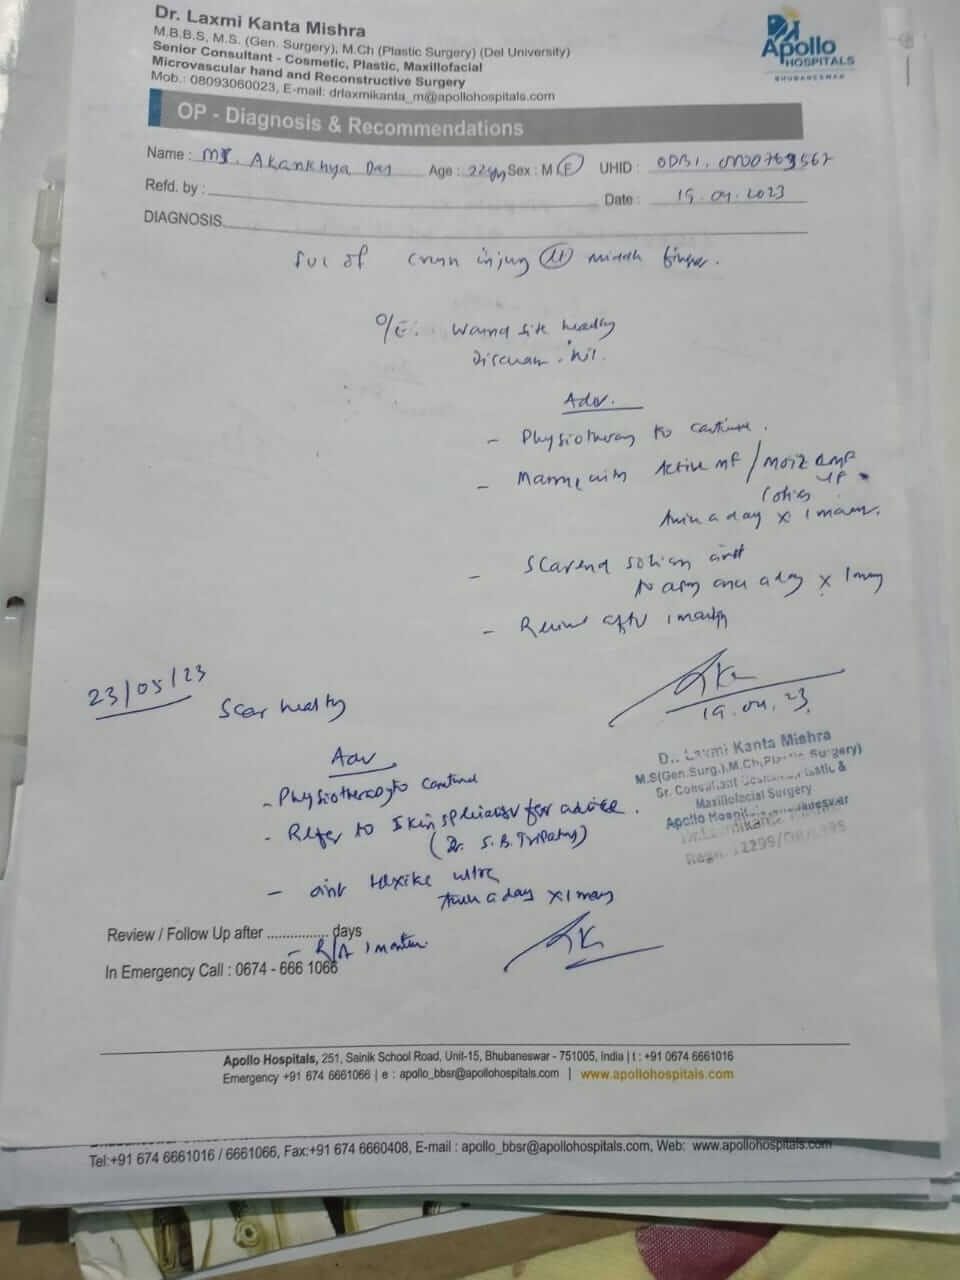 Dr. Laxmi Kanta Mishra
M.B.B.S, M.S. (Gen. Surgery), M.Ch (Plastic Surgery) (Del University)
Senior Consultant - Cosmetic, Plastic, Maxillofacial
Microvascular hand and Reconstructive Surgery
Mob.: 08093060023, E-mail: drlaxmikanta_m@apollohospitals.com
Apollo
HOSPITALS
BHUBANESWAR
OP - Diagnosis & Recommendations
Name : Akankhya Das Age : 22 Sex : M F UHID :
Refd. by : Date : 19.04.2023
DIAGNOSIS
of crush injury middle finger.
O/E. Wound site healthy
Discharge . Nil.
Adv.
- Physiotherapy to continue.
- Massage with Active MF /
twice a day x 1 month.
- Scarend
once a day x 1 month
- Review after 1 month
19.04.23
23/05/23
Scar healthy
Adv
- Physiotherapy to continue
- Refer to Skin specialist for advice.
(Dr. S.B. Tripathy)
- oint ultra
twice a day x 1 month
Dr. Laxmi Kanta Mishra
M.S(Gen.Surg.), M.Ch,(Plastic Surgery)
Sr. Consultant Cosmetic, Plastic &
Maxillofacial Surgery
Apollo Hospitals, Bhubaneswar
Review / Follow Up after ................ days
- R/A 1 month.
In Emergency Call : 0674 - 666 1066
Apollo Hospitals, 251, Sainik School Road, Unit-15, Bhubaneswar - 751005, India | t : +91 0674 6661016
Emergency +91 674 6661066 | e : apollo_bbsr@apollohospitals.com | www.apollohospitals.com
Tel:+91 674 6661016 / 6661066, Fax:+91 674 6660408, E-mail : apollo_bbsr@apollohospitals.com, Web: www.apollohospitals.com